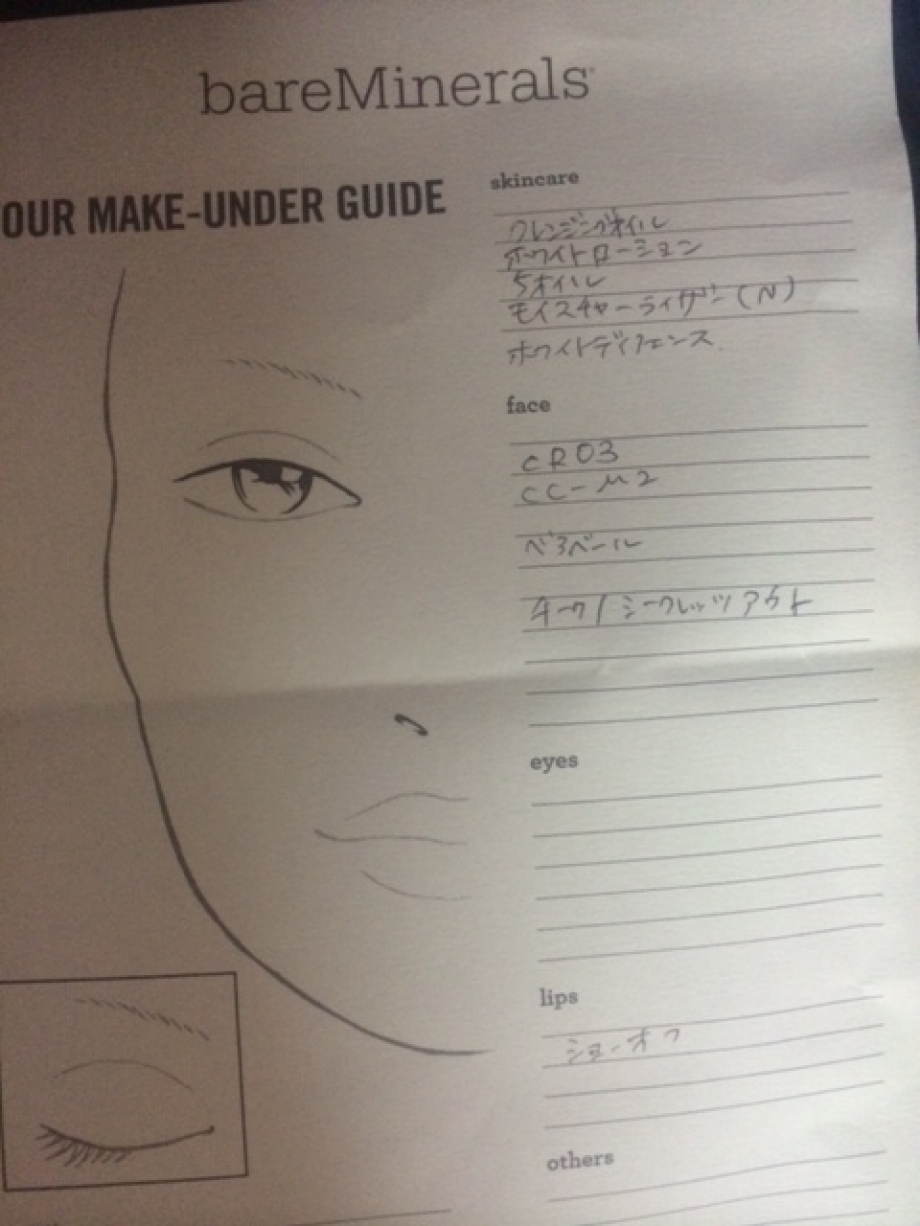 bareMinerals
OUR MAKE-UNDER GUIDE
skincare
クレンジングオイル
ホワイトローション
5オイル
モイスチャーライザー(N)
ホワイトディフェンス
face
CR03
CC-M2
ベアベール
チーク/シークレッツアウト
eyes
lips
ショーオフ
others